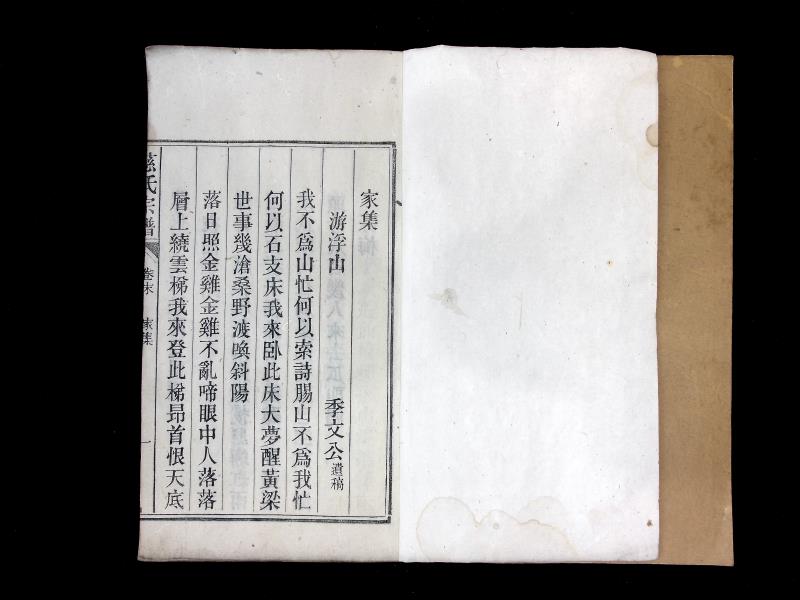 家集
游浮山 季文公遺稿
我不爲山忙何以索詩腸山不爲我忙
何以石支床我來卧此床大夢醒黃梁
世事幾滄桑野渡喚斜陽
落日照金雞金雞不亂啼眼中人落落
層上繞雲梯我來登此梯昂首恨天底
氏宗譜 卷末 家集